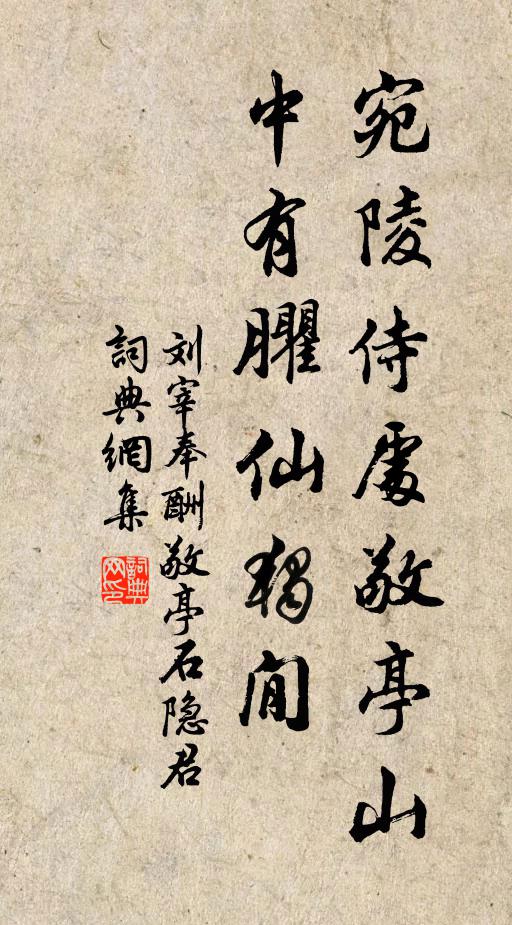 宛陵侍處敬亭山
中有臞仙獨閒
刘宰奉酬敬亭石隐君
詞典網集
詞典网印